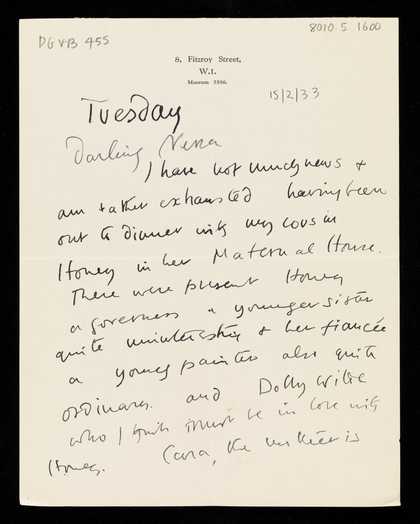 DGVB 455
8010.5.1600
8, Fitzroy Street,
W.1.
Museum 1896.
15/2/33
Tuesday
Darling Nessa
I have not much news &
am rather exhausted having been
out to dinner with my cousin
Honey in her Maternal House.
There were present Honey
a governess a younger sister
quite uninteresting & her fiancée
a young painter also quite
ordinary. and Dolly Wilde
who I think must be in love with
Honey. Cara, the mother is